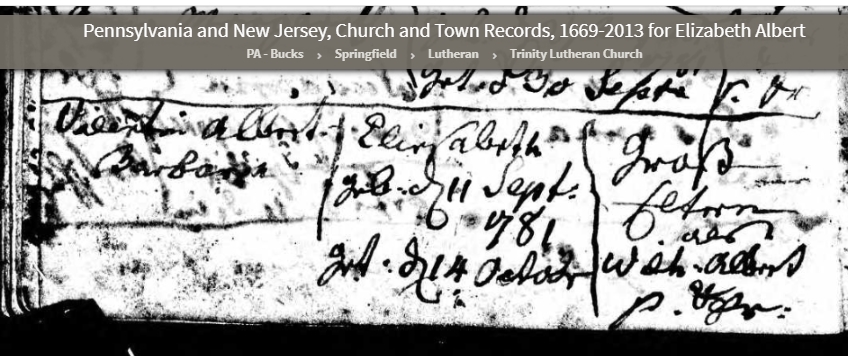 Pennsylvania and New Jersey, Church and Town Records, 1669-2013 for Elizabeth Albert
PA - Bucks › Springfield › Lutheran › Trinity Lutheran Church
get. d 30 Septr
Valentin Albert
Barbara
Elisabeth
geb. d 11 Sept.
1781
get. d 14 Octobr
Groß
Eltern
als
Wilh. Albert